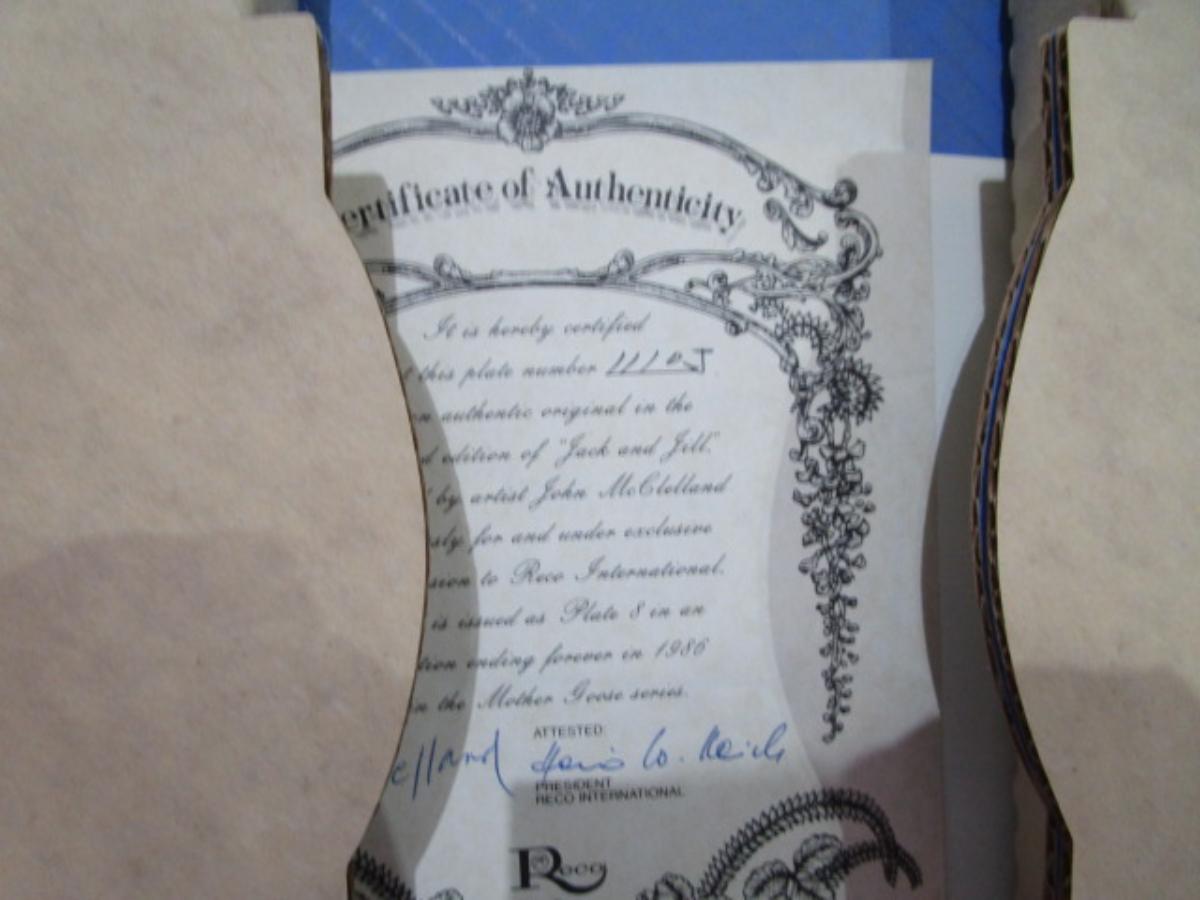 ertificate of Authenticity
It is hereby certified
this plate number
authentic original in the
edition of "Jack and Jill"
by artist John McClelland
sly for and under exclusive
sion to Reco International.
is issued as Plate 8 in an
tion ending forever in 1986
n the Mother Goose series.
ATTESTED:
PRESIDENT
RECO INTERNATIONAL
Reco